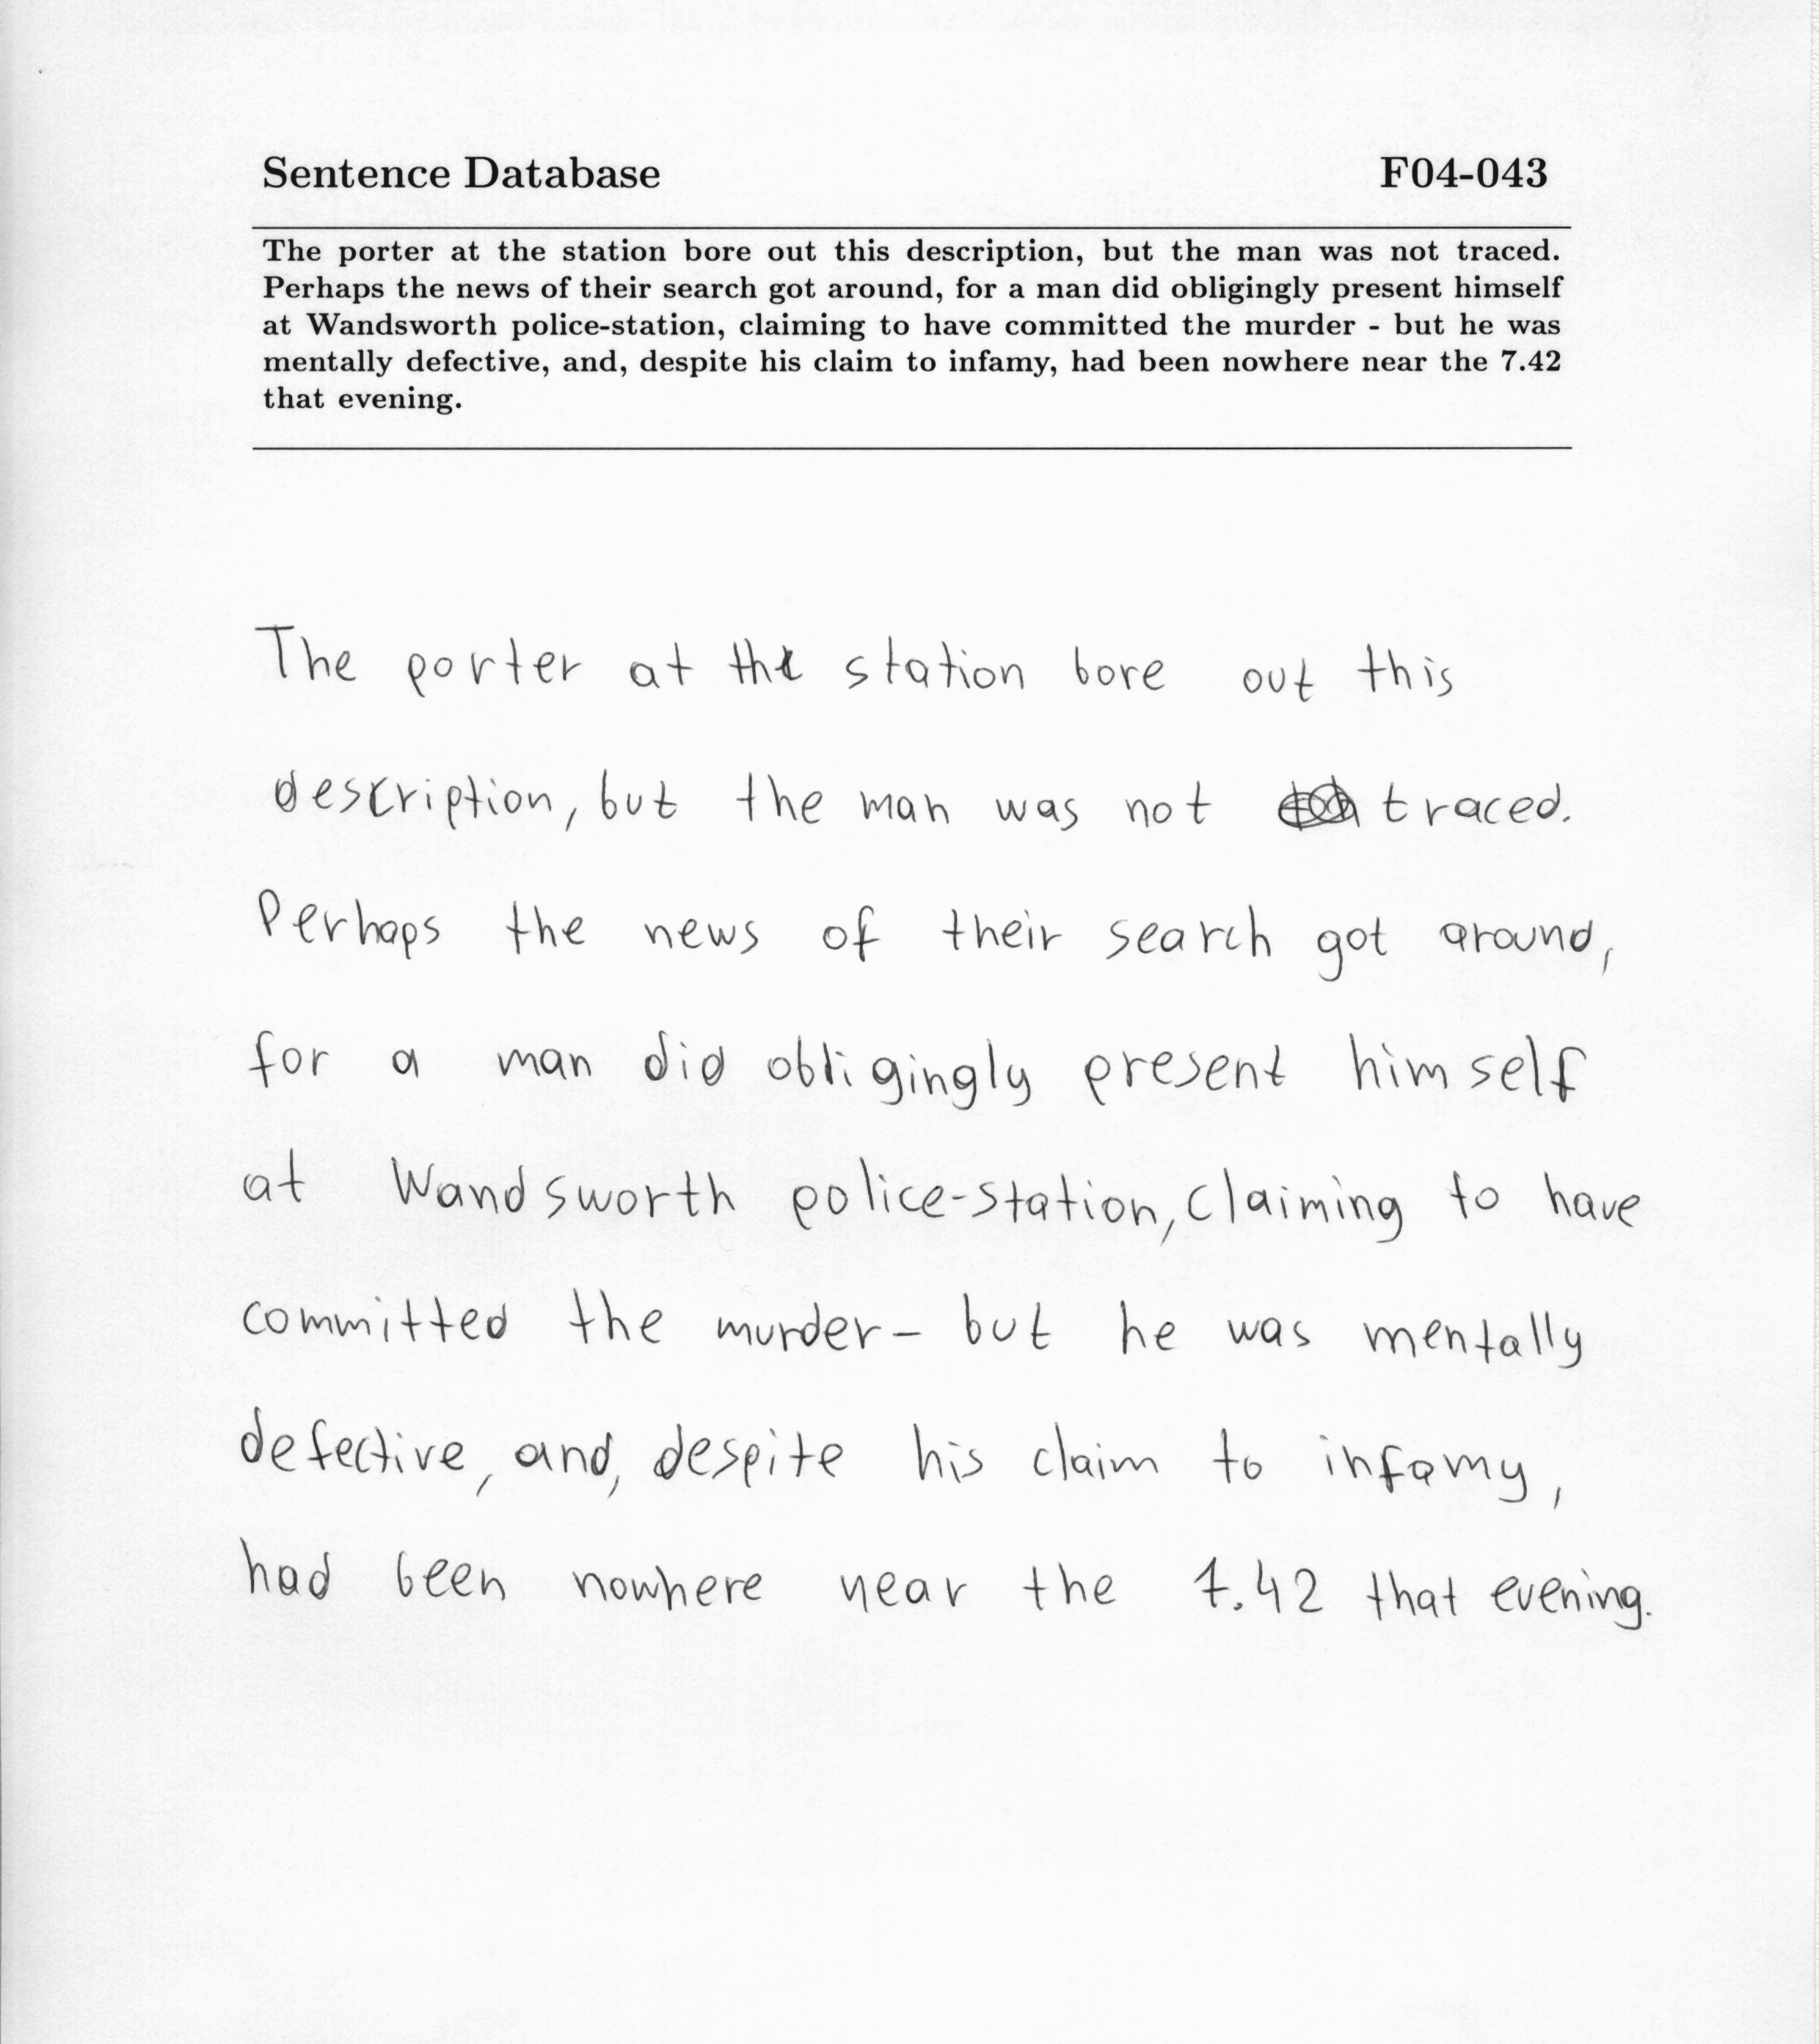 Sentence Database F04-043
The porter at the station bore out this description, but the man was not traced.
Perhaps the news of their search got around, for a man did obligingly present himself
at Wandsworth police-station, claiming to have committed the murder - but he was
mentally defective, and, despite his claim to infamy, had been nowhere near the 7.42
that evening.
The porter at the station bore out this
description, but the man was not traced.
Perhaps the news of their search got around,
for a man did obligingly present himself
at Wandsworth police-station, claiming to have
committed the murder - but he was mentally
defective, and, despite his claim to infamy,
had been nowhere near the 7.42 that evening.